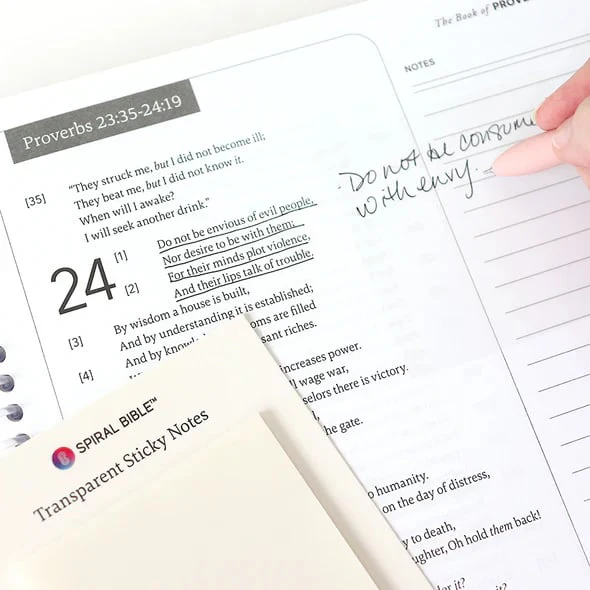 The Book of
NOTES
Proverbs 23:35-24:19
[35] "They struck me, but I did not become ill;
They beat me, but I did not know it.
When will I awake?
I will seek another drink."
24
[1] Do not be envious of evil people,
Nor desire to be with them;
[2] For their minds plot violence,
And their lips talk of trouble.
[3] By wisdom a house is built,
And by understanding it is established;
[4] And by
are filled
riches.
increases power.
wage war,
there is victory.
he gate.
humanity.
on the day of distress,
to death,
Oh hold them back!
it?
· Do not be
with envy.
SPIRAL BIBLE™
Transparent Sticky Notes